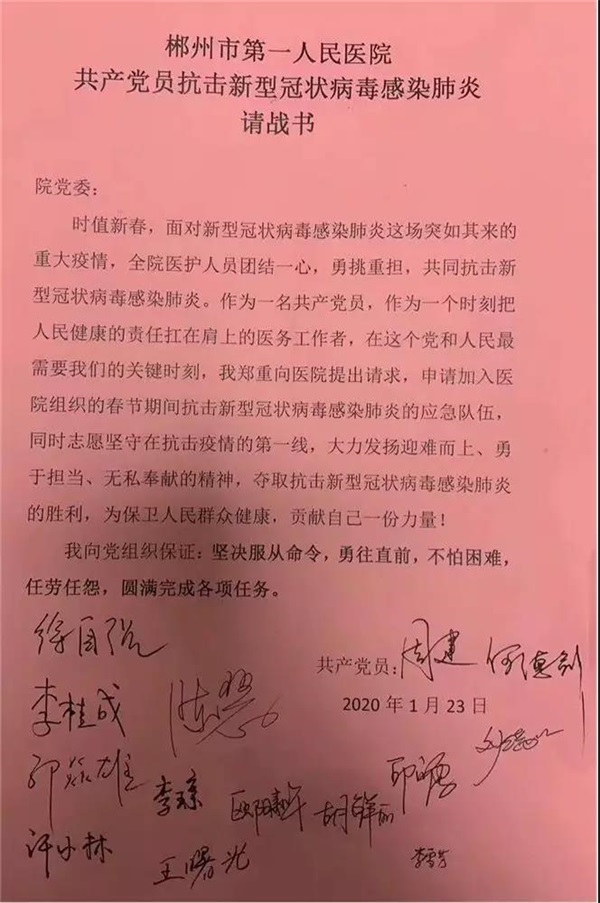 郴州市第一人民医院
共产党员抗击新型冠状病毒感染肺炎
请战书
院党委：
时值新春，面对新型冠状病毒感染肺炎这场突如其来的
重大疫情，全院医护人员团结一心，勇挑重担，共同抗击新
型冠状病毒感染肺炎。作为一名共产党员，作为一个时刻把
人民健康的责任扛在肩上的医务工作者，在这个党和人民最
需要我们的关键时刻，我郑重向医院提出请求，申请加入医
院组织的春节期间抗击新型冠状病毒感染肺炎的应急队伍，
同时志愿坚守在抗击疫情的第一线，大力发扬迎难而上、勇
于担当、无私奉献的精神，夺取抗击新型冠状病毒感染肺炎
的胜利，为保卫人民群众健康，贡献自己一份力量！
我向党组织保证：坚决服从命令，勇往直前，不怕困难，
任劳任怨，圆满完成各项任务。
共产党员：周建
2020 年 1 月 23 日
李桂成
李琼
许小林
王曙光
李雪芳